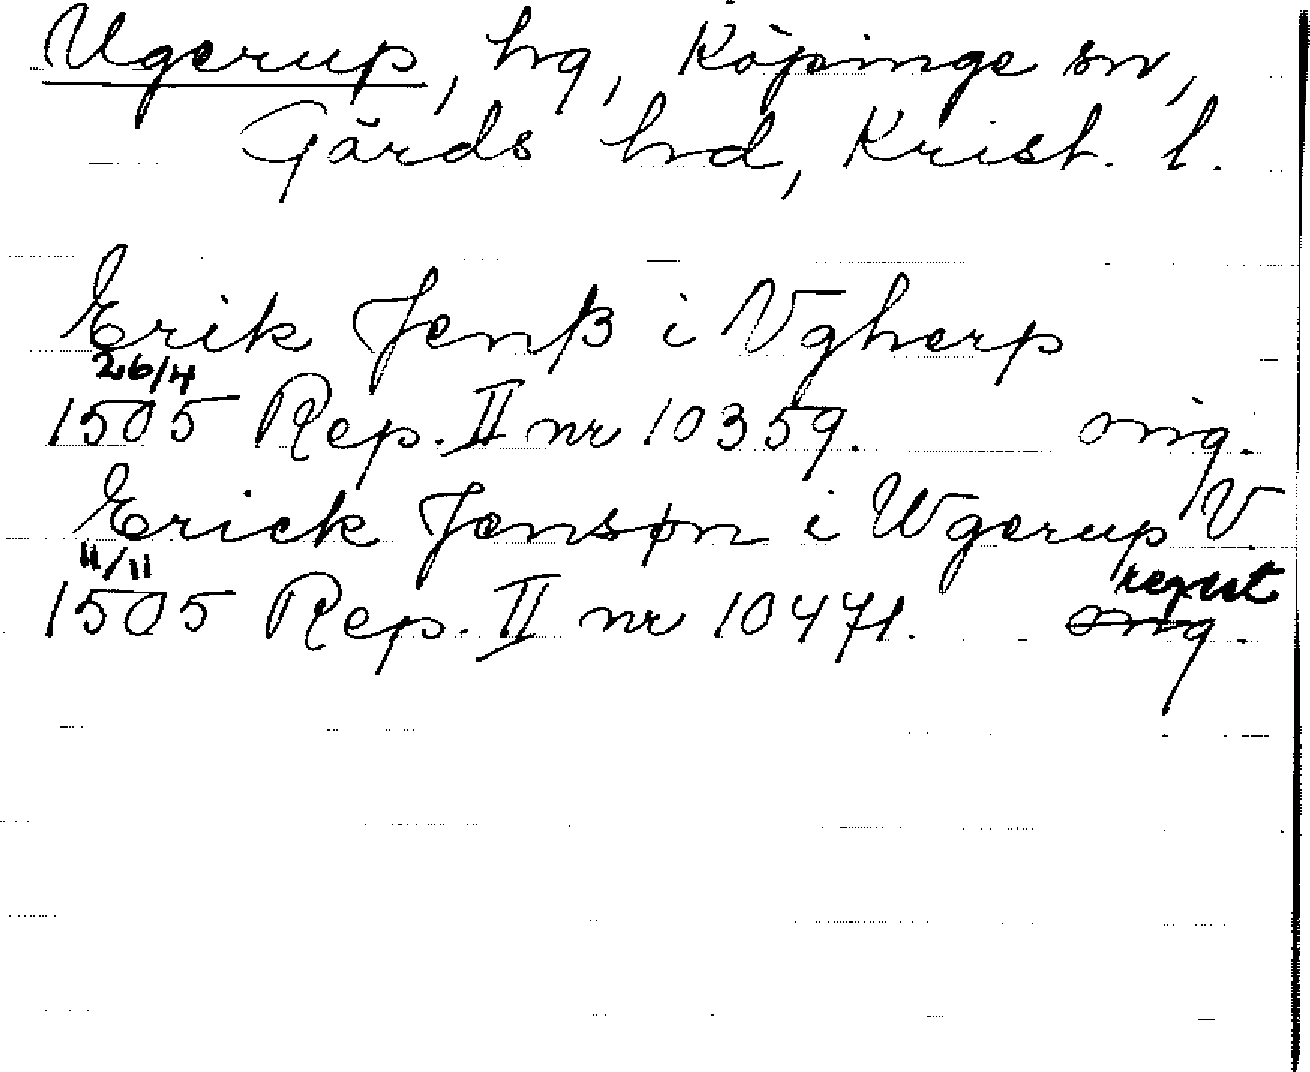 Ugerup, hg, Köpinge sn,
Gärds hrd, Krist. l.
Erik Jenß i Vgherp
26/4
1505 Rep. II nr 10359. orig.
Erick Jensøn i Wgerup V.
11/11 regest
1505 Rep. II nr 10471. orig.